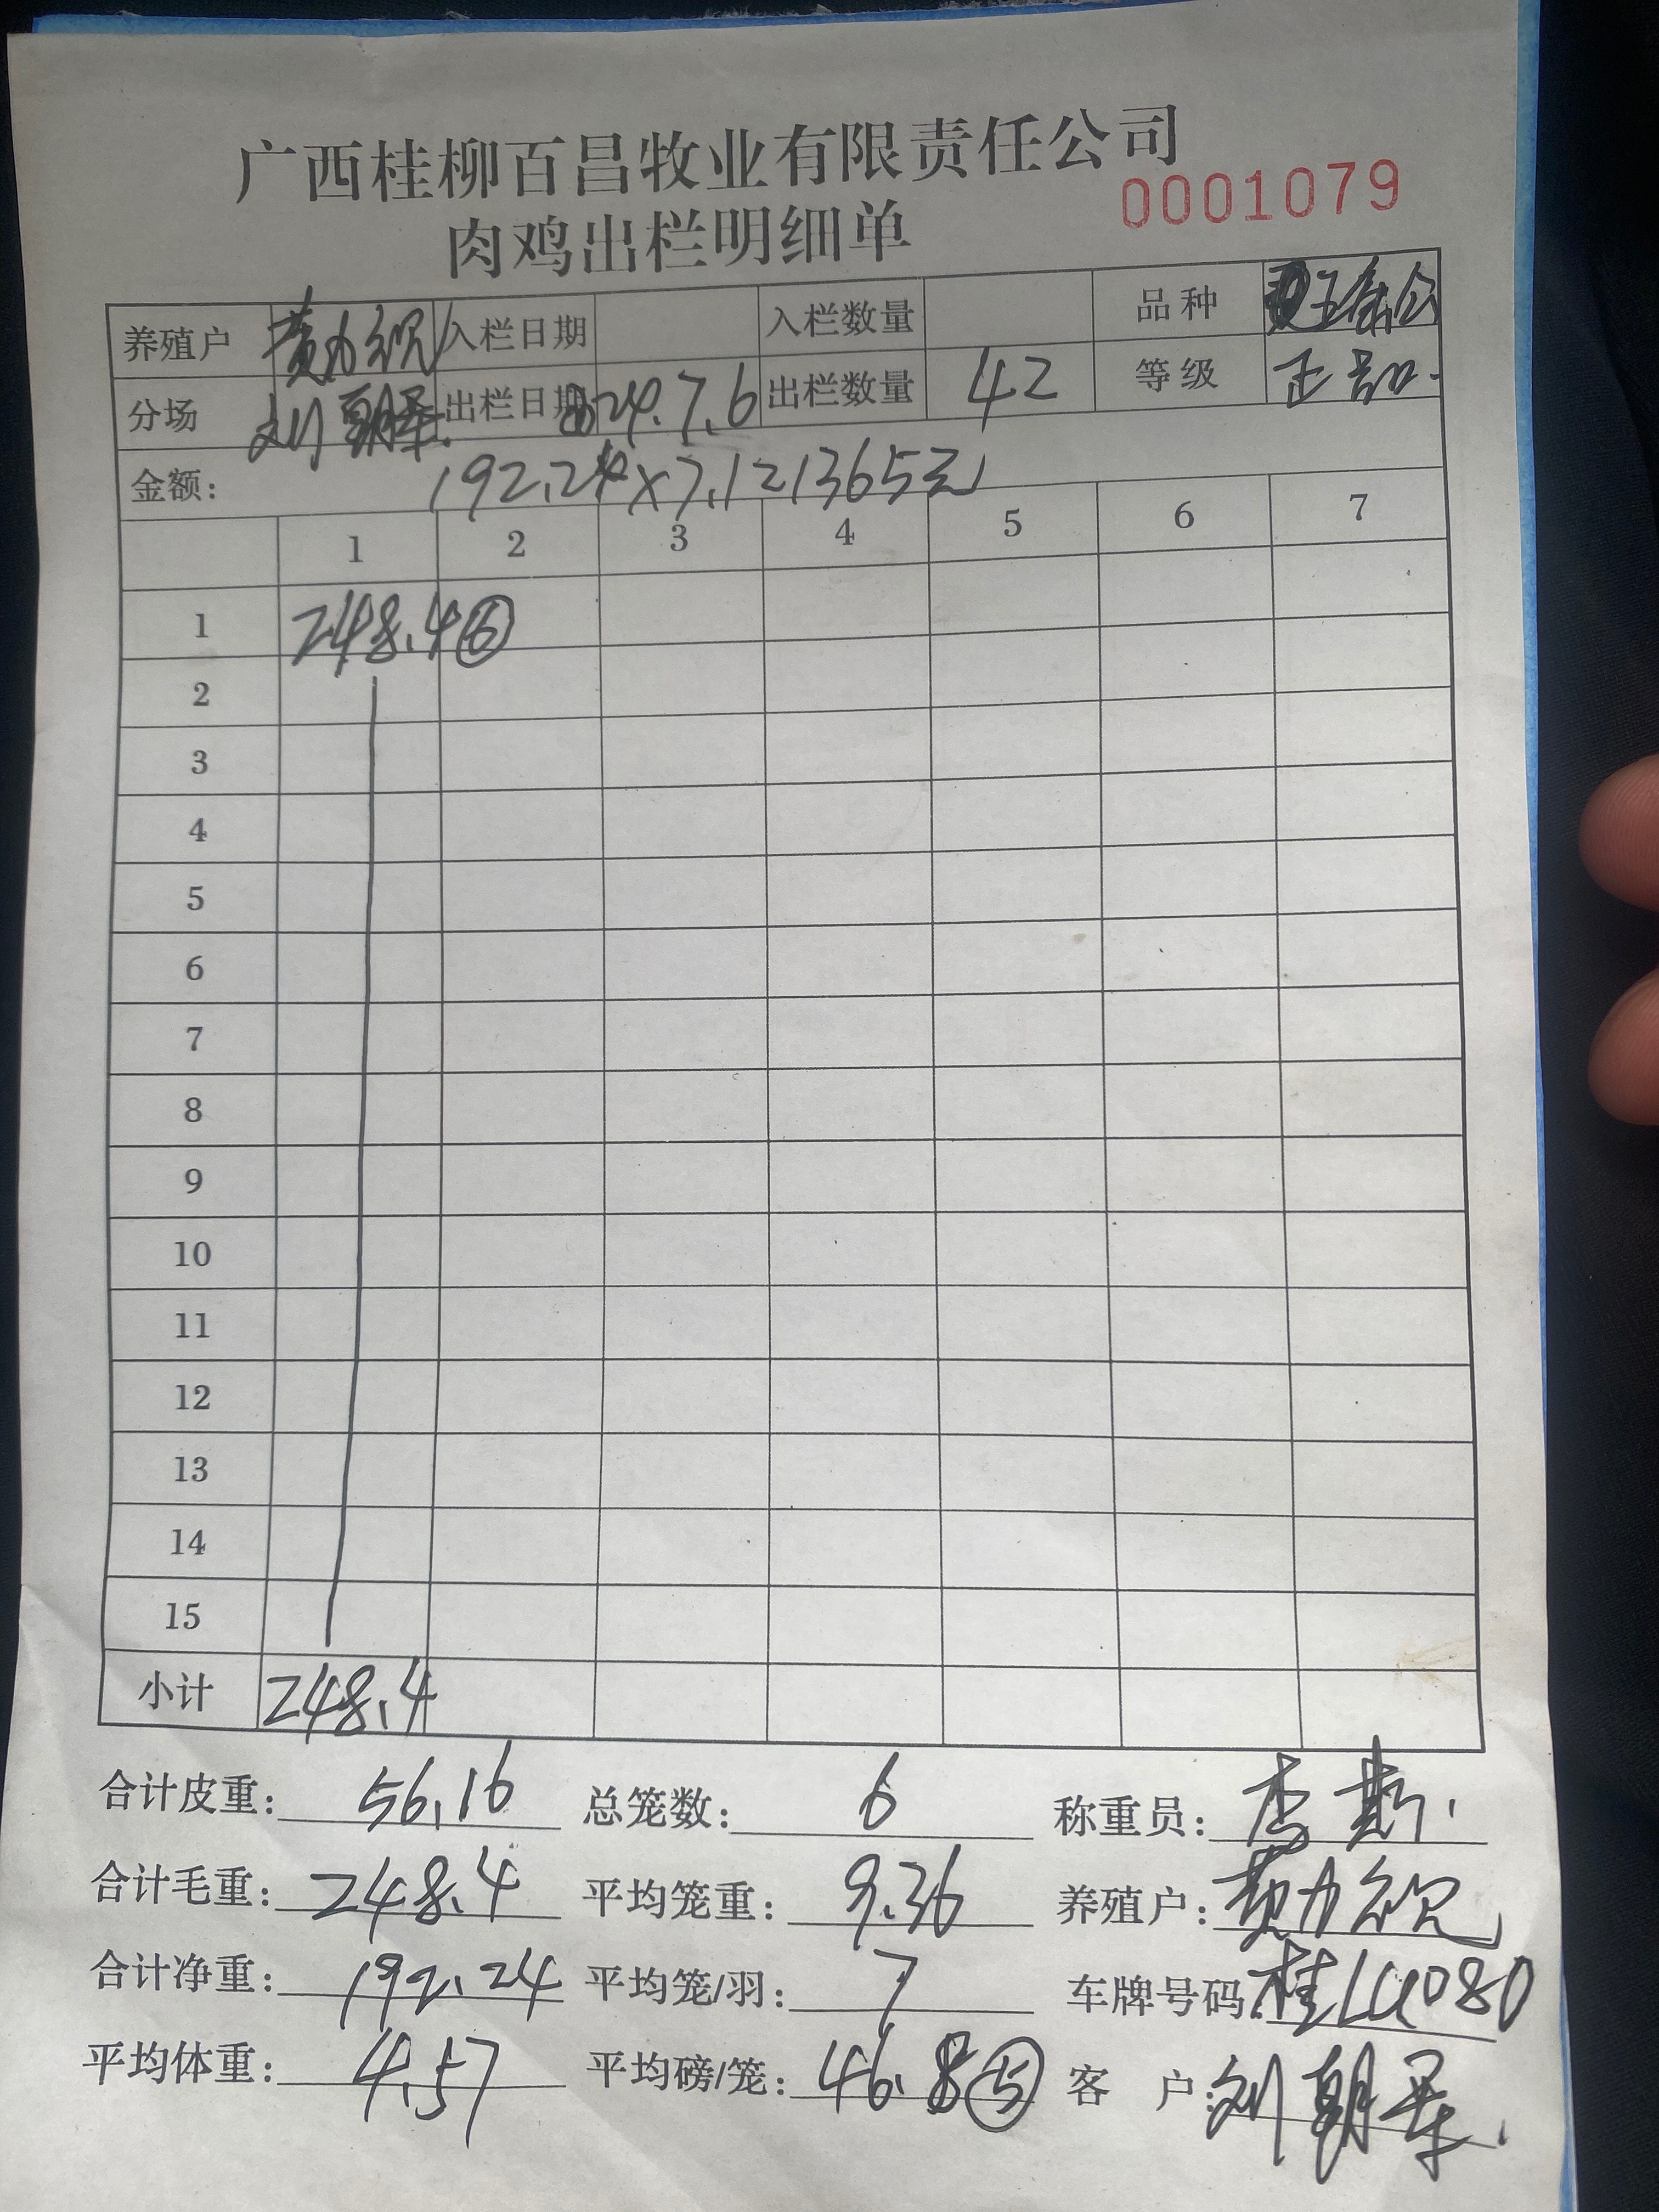 广西桂柳百昌牧业有限责任公司
0001079
肉鸡出栏明细单
养殖户 黄力 入栏日期 入栏数量 品种
分场 刘朝 出栏日期 24.7.6 出栏数量 42 等级 正品.
金额: 192.24×7.1 = 1365元
1 2 3 4 5 6 7
1 248.4⑥
2
3
4
5
6
7
8
9
10
11
12
13
14
15
小计 248.4
合计皮重: 56.16 总笼数: 6 称重员:
合计毛重: 248.4 平均笼重: 9.36 养殖户: 黄力
合计净重: 192.24 平均笼/羽: 7 车牌号码: 桂LU080
平均体重: 4.57 平均磅/笼: 46.8⑤ 客 户: 刘朝